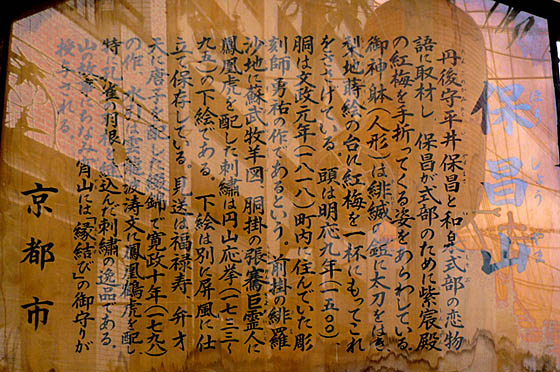 保昌山
ほうしょうやま
丹後守平井保昌と和泉式部の恋物
語に取材し、保昌が式部のために紫宸殿
の紅梅を手折ってくる姿をあらわしている。
御神躰(人形)は緋縅の鎧に太刀をはき
梨地蒔絵の台に紅梅を一杯にもってこれ
をささげている。頭は明応九年(一五〇〇)、
胴は文政元年(一八一八)町内に住んでいた彫
刻師勇祐の作であるという。前掛の緋羅
沙地に蘇武牧羊図、胴掛の張騫巨霊人に
鳳凰虎を配した刺繍は円山応挙(一七三三〜
九五)の下絵である。下絵は別に屏風に仕
立て保存している。見送は福禄寿、弁才
天に唐子を配した綴錦で寛政十年(一七九八)
の作、水引は雲龍波涛文に鳳凰鶴虎を配し
特に孔雀の羽根を縫込んだ刺繍の逸品である。
山故事にちなみ宵山には「縁結び」の御守りが
授与される。
京都市